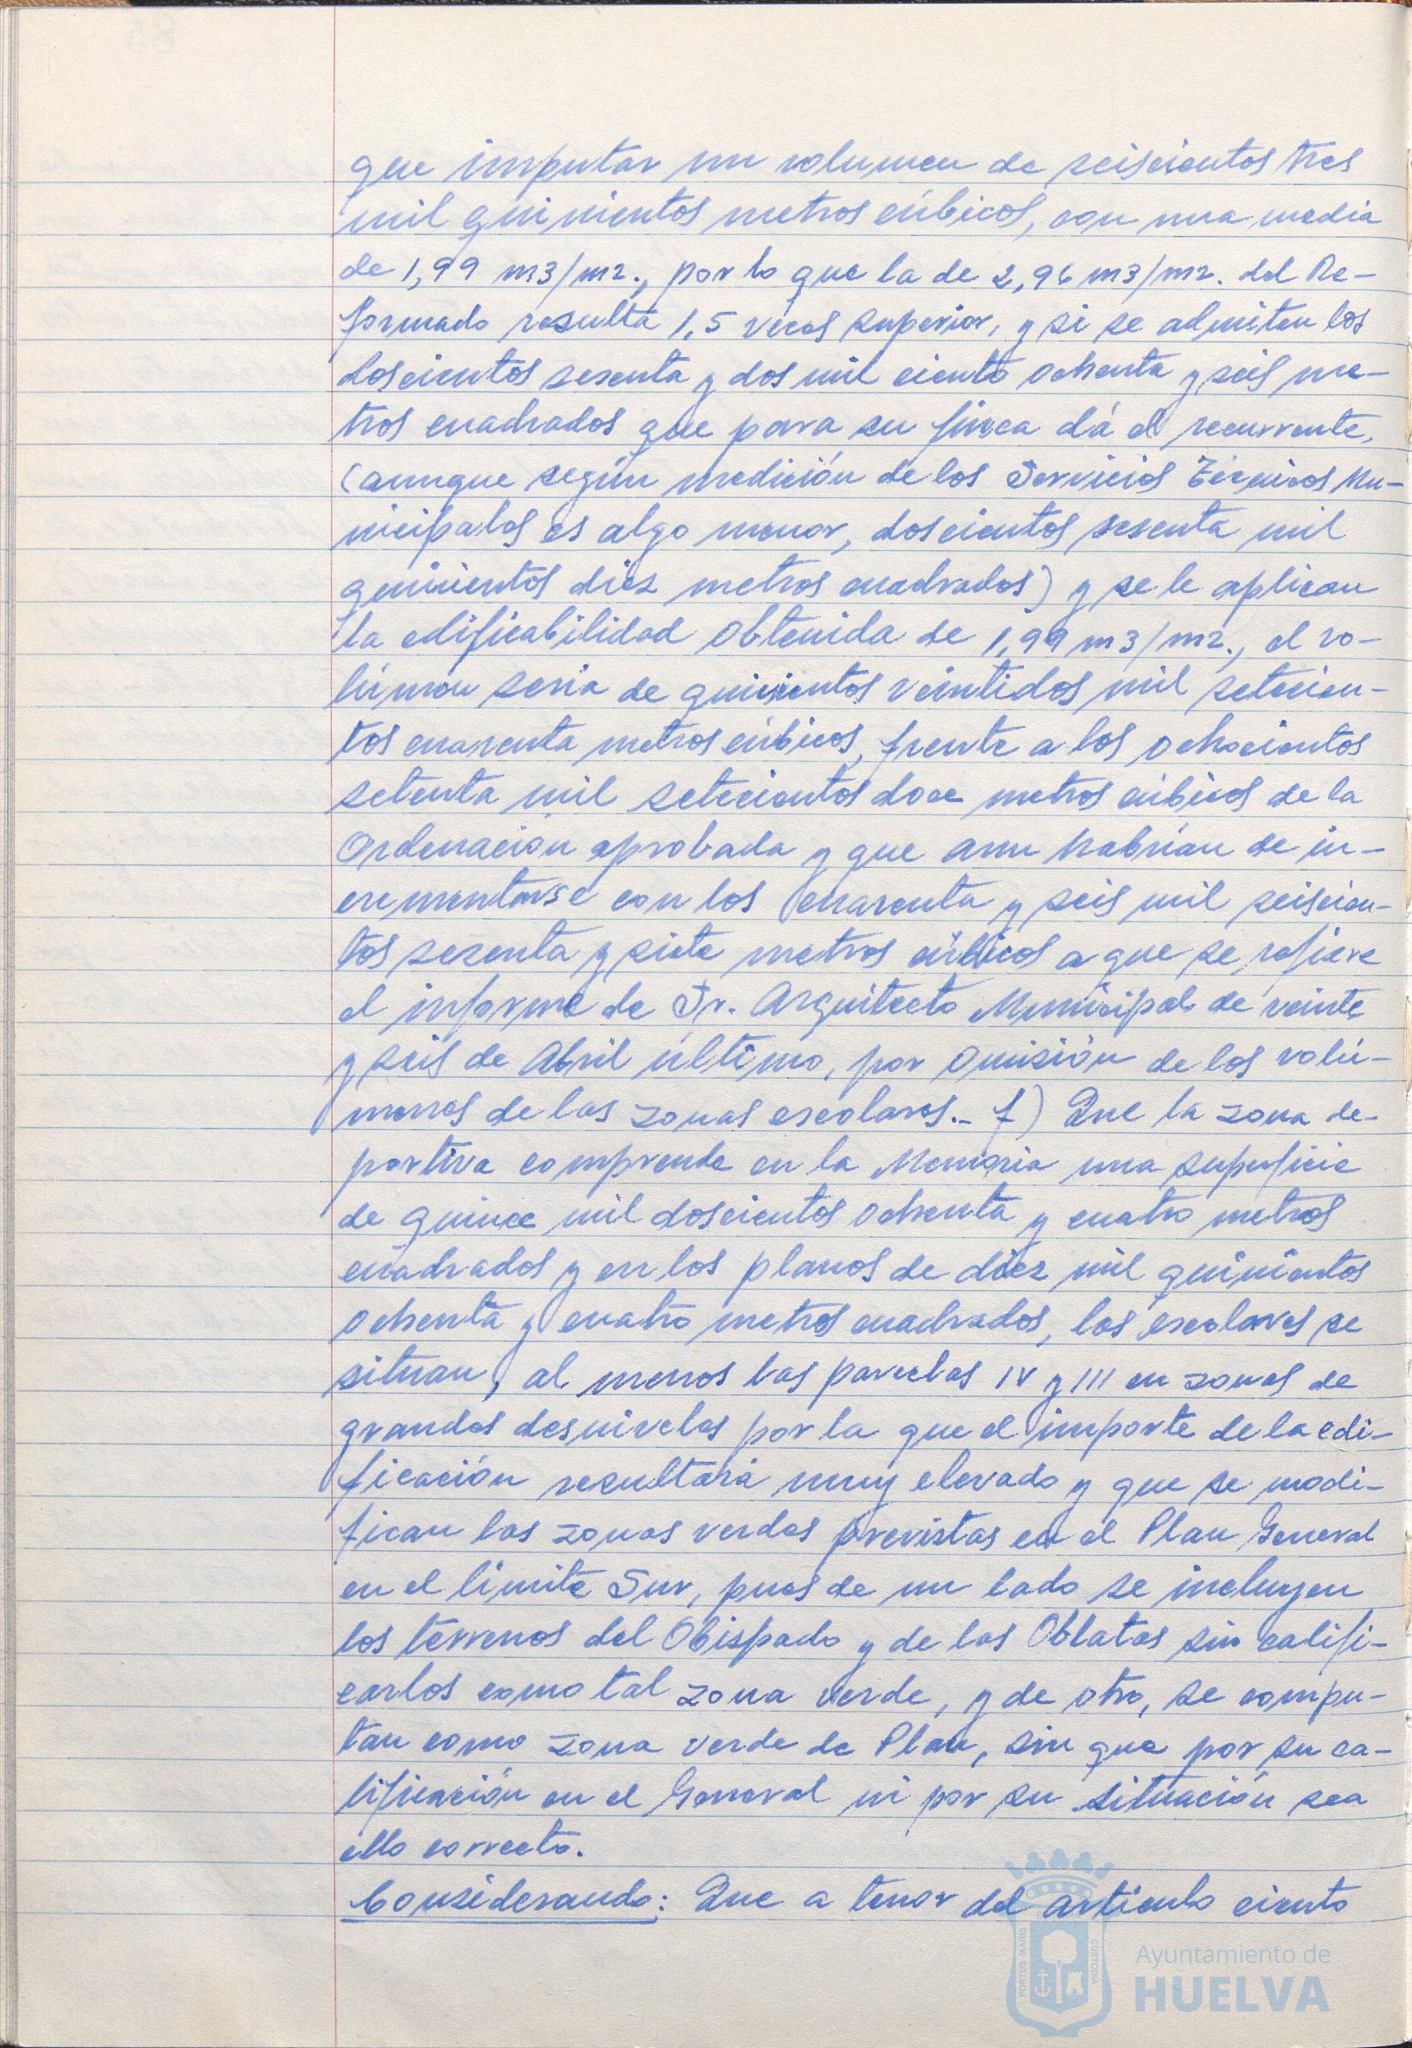 que imputar un volumen de seiscientos tres
mil quinientos metros cúbicos, con una media
de 1,99 m3/m2., por lo que la de 2,96 m3/m2. del Re-
formado resulta 1,5 veces superior, y si se admiten los
doscientos sesenta y dos mil ciento ochenta y seis me-
tros cuadrados que para su finca dá el recurrente,
(aunque según medición de los Servicios Técnicos Mu-
nicipales es algo menor, doscientos sesenta mil
quinientos diez metros cuadrados) y se le aplican
la edificabilidad obtenida de 1,99 m3/m2., el vo-
lúmen seria de quinientos veintidos mil setecien-
tos cuarenta metros cúbicos, frente a los ochocientos
setenta mil setecientos doce metros cúbicos de la
Ordenación aprobada y que aun habrían de in-
crementarse con los cuarenta y seis mil seiscien-
tos sesenta y siete metros cúbicos a que se refiere
el informe de Sr. Arquitecto Municipal de veinte
y seis de Abril último, por omisión de los volú-
menes de las zonas escolares.- f) Que la zona de-
portiva comprende en la Memoria una superficie
de quince mil doscientos ochenta y cuatro metros
cuadrados y en los planos de diez mil quinientos
ochenta y cuatro metros cuadrados, las escolares se
situan, al menos las parcelas IV y III en zonas de
grandes desniveles por la que el importe de la edi-
ficación resultará muy elevado y que se modi-
fican las zonas verdes previstas en el Plan General
en el limite Sur, pues de un lado se incluyen
los terrenos del Obispado y de las Oblatas sin califi-
carlos como tal zona verde, y de otro, se compu-
tan como zona verde de Plan, sin que por su ca-
lificación en el General ni por su situación sea
ello correcto.
Considerando: Que a tenor del articulo ciento
PORTUS MARIS CUSTODIA
Ayuntamiento de
HUELVA